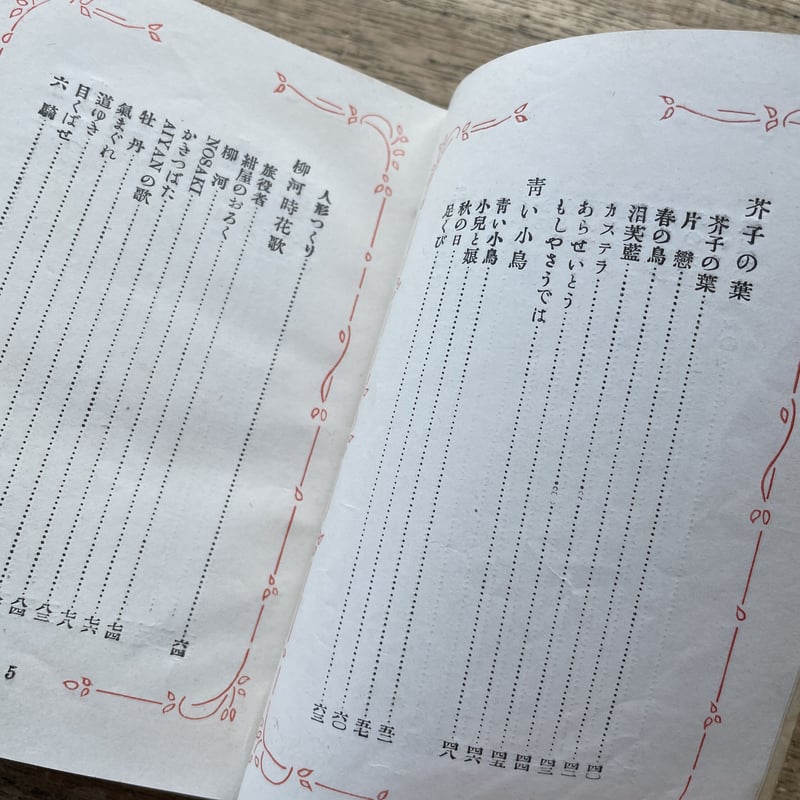 芥子の葉
芥子の葉 四〇
片戀 四二
春の鳥 四三
泪芙藍 四四
カステラ 四五
あらせいとう 四六
もしやさうでは 四八
靑い小鳥
靑い小鳥 五二
小兒と娘 五七
秋の日 六〇
足くび 六三
人形つくり 六四
柳河時花歌
旅役者 七四
紺屋のおろく 七六
柳河 七八
NOSAKI 八三
かきつばた 八四
AIYANの歌
牡丹
氣まぐれ
道ゆき
目くばせ
六騎
5